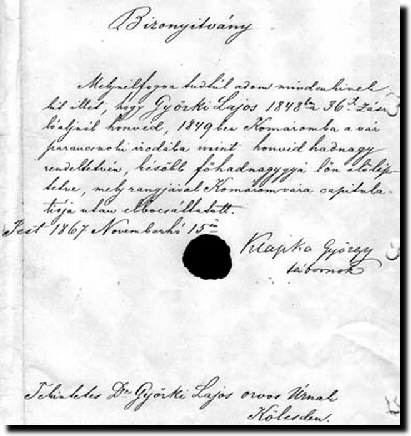 Bizonyitvány
Melynélfogva tudtúl adom mindenkinek
kit illet, hogy Györki Lajos 1848ba 36k zász
lóaljnál honvéd, 1849ben Komáromba a vár
parancsnoki irodába mint honvéd hadnagy
rendeltetvén, később főhadnagygyá lőn előlép
tetve, mely rangjával Komárom vára capitula
tiója után elbocsáttatott.
Pest 1867 Novemberhó 15én
Klapka György
tábornok
Tekintetes Dr Györki Lajos orvos Úrnak
Kölesden.